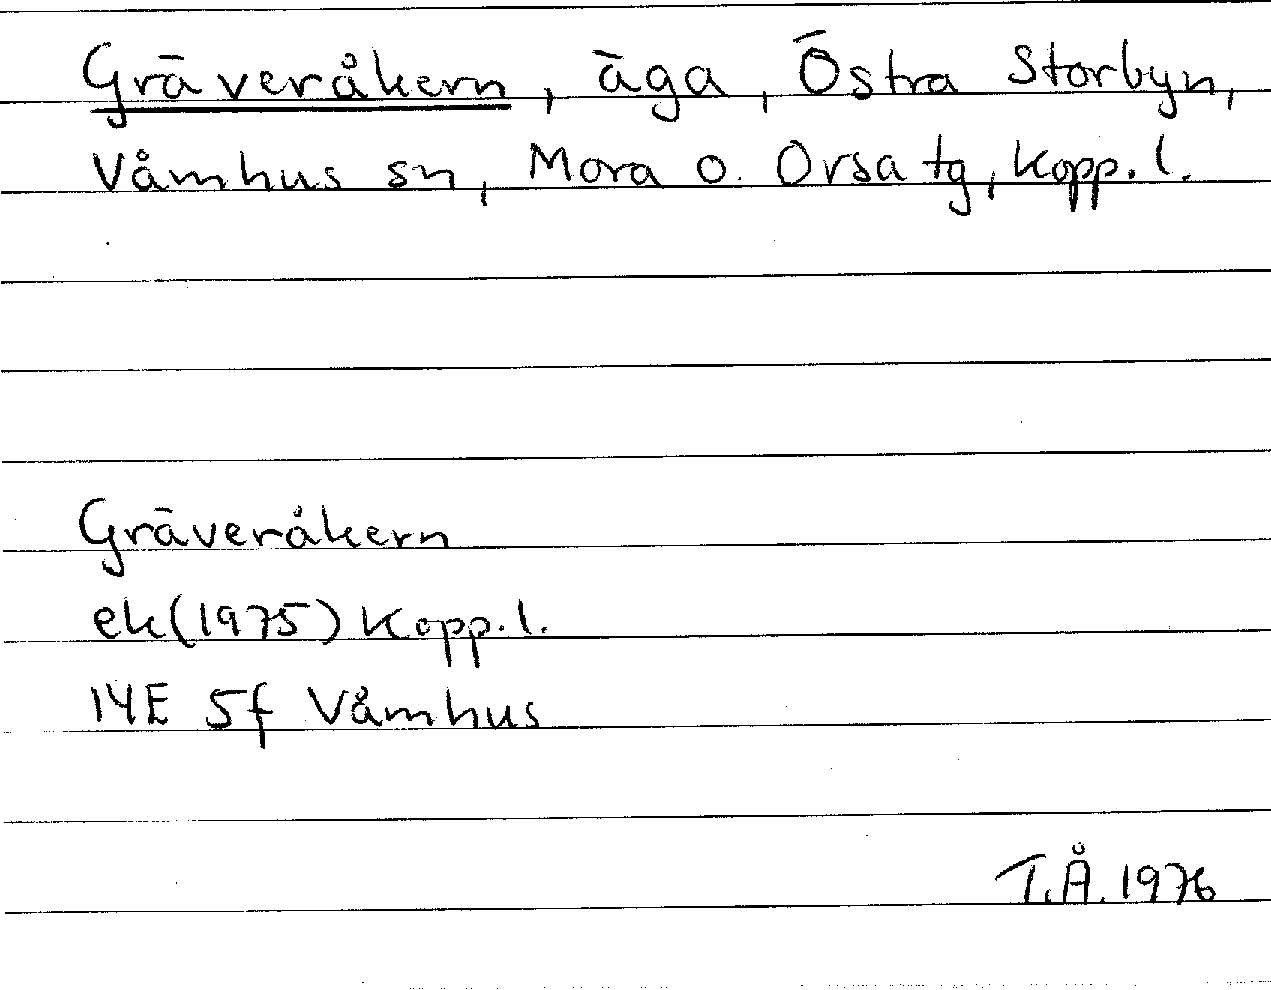 Gräveråkern, äga, Östra Storbyn,
Våmhus sn, Mora o. Orsa tg, Kopp. l.
Gräveråkern
ek (1975) Kopp. l.
14E 5f Våmhus
T.Å. 1976